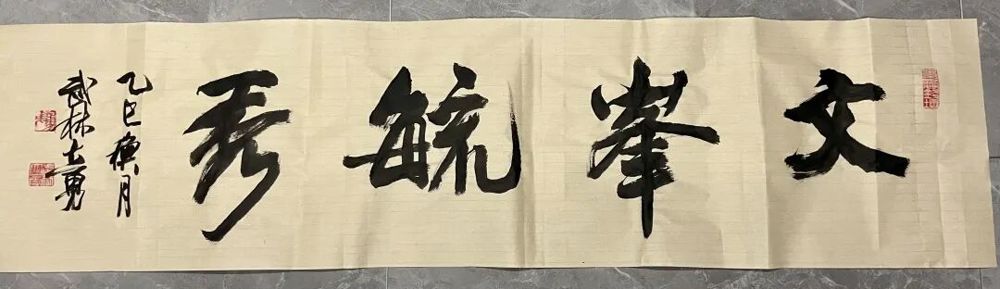 文峯毓秀
乙巳 月
武林大勇